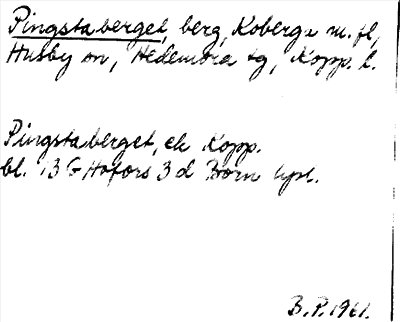 Pingstaberget, berg, Koberga m. fl,
Husby sn, Hedemora tg, Kopp. l.
Pingstaberget, ek Kopp.
bl. 13 G Hofors 3 d Born
B.P. 1961.